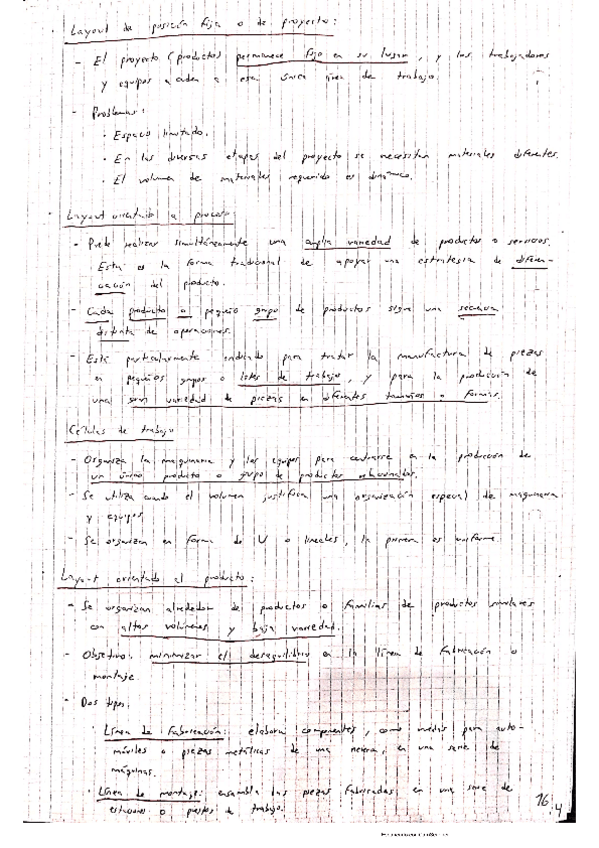 Layout de posición fija o de proyecto:
- El proyecto (producto) permanece fijo en su lugar, y los trabajadores
y equipos acuden a esa única área de trabajo.
- Problemas:
· Espacio limitado.
· En las diversas etapas del proyecto se necesitan materiales diferentes.
· El volumen de materiales requerido es dinámico.
Layout orientado a proceso
- Puede realizar simultáneamente una amplia variedad de productos o servicios.
Esta es la forma tradicional de apoyar una estrategia de diferen-
ciación del producto.
- Cada producto o pequeño grupo de productos sigue una secuencia
distinta de operaciones.
- Está particularmente indicado para tratar la manufactura de piezas
en pequeños grupos o lotes de trabajo, y para la producción de
una gran variedad de piezas en diferentes tamaños o formas.
Células de trabajo
- Organiza la maquinaria y los equipos para centrarse en la producción de
un único producto o grupo de productos relacionados.
- Se utiliza cuando el volumen justifica una organización especial de maquinaria
y equipos
- Se organizan en forma de U o lineales, la primera es uniforme
Layout orientado al producto:
- Se organizan alrededor de productos o familias de productos similares
con altos volúmenes y baja variedad.
- Objetivo: minimizar el desequilibrio en la línea de fabricación o
montaje.
- Dos tipos:
· Línea de fabricación: elabora componentes, como para auto-
móviles o piezas metálicas de una nevera, en una serie de
máquinas.
· Línea de montaje: ensambla las piezas fabricadas en una serie de
estaciones o puestos de trabajo.
16
4